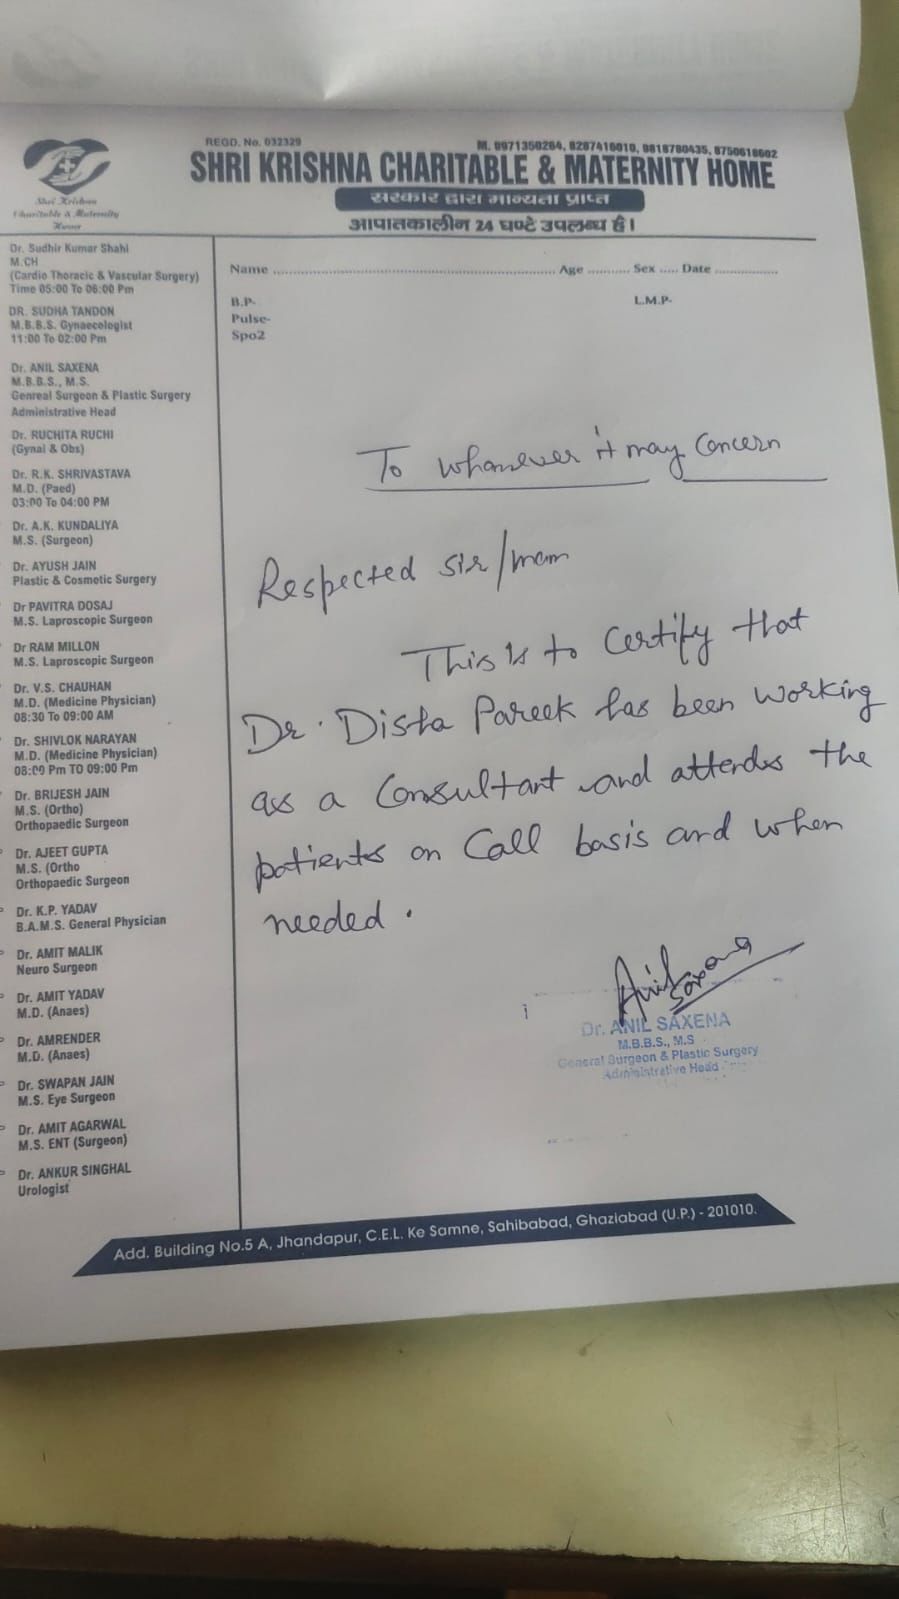 REGD. No. 032329
M. 9971350264, 8287416010, 9818780435, 8750618602
SHRI KRISHNA CHARITABLE & MATERNITY HOME
सरकार द्वारा मान्यता प्राप्त
आपातकालीन 24 घण्टे उपलब्ध है।
Shri Krishna
Charitable & Maternity
Home
Dr. Sudhir Kumar Shahi
M.CH
(Cardio Thoracic & Vascular Surgery)
Time 05:00 To 06:00 Pm
DR. SUDHA TANDON
M.B.B.S. Gynaecologist
11:00 To 02:00 Pm
Dr. ANIL SAXENA
M.B.B.S., M.S.
Genreal Surgeon & Plastic Surgery
Administrative Head
Dr. RUCHITA RUCHI
(Gynai & Obs)
Dr. R.K. SHRIVASTAVA
M.D. (Paed)
03:00 To 04:00 PM
Dr. A.K. KUNDALIYA
M.S. (Surgeon)
Dr. AYUSH JAIN
Plastic & Cosmetic Surgery
Dr PAVITRA DOSAJ
M.S. Laproscopic Surgeon
Dr RAM MILLON
M.S. Laproscopic Surgeon
Dr. V.S. CHAUHAN
M.D. (Medicine Physician)
08:30 To 09:00 AM
Dr. SHIVLOK NARAYAN
M.D. (Medicine Physician)
08:00 Pm TO 09:00 Pm
Dr. BRIJESH JAIN
M.S. (Ortho)
Orthopaedic Surgeon
Dr. AJEET GUPTA
M.S. (Ortho
Orthopaedic Surgeon
Dr. K.P. YADAV
B.A.M.S. General Physician
Dr. AMIT MALIK
Neuro Surgeon
Dr. AMIT YADAV
M.D. (Anaes)
Dr. AMRENDER
M.D. (Anaes)
Dr. SWAPAN JAIN
M.S. Eye Surgeon
Dr. AMIT AGARWAL
M.S. ENT (Surgeon)
Dr. ANKUR SINGHAL
Urologist
Name ........ Age ........ Sex ..... Date ........
B.P- L.M.P-
Pulse-
Spo2
To whomever it may Concern
Respected sir/mam
This is to Certify that
Dr. Disha Pareek has been working
as a Consultant and attendes the
patients on Call basis and when
needed.
Anil Saxena
Dr. ANIL SAXENA
M.B.B.S., M.S
General Surgeon & Plastic Surgery
Administrative Head
Add. Building No.5 A, Jhandapur, C.E.L. Ke Samne, Sahibabad, Ghaziabad (U.P.) - 201010.